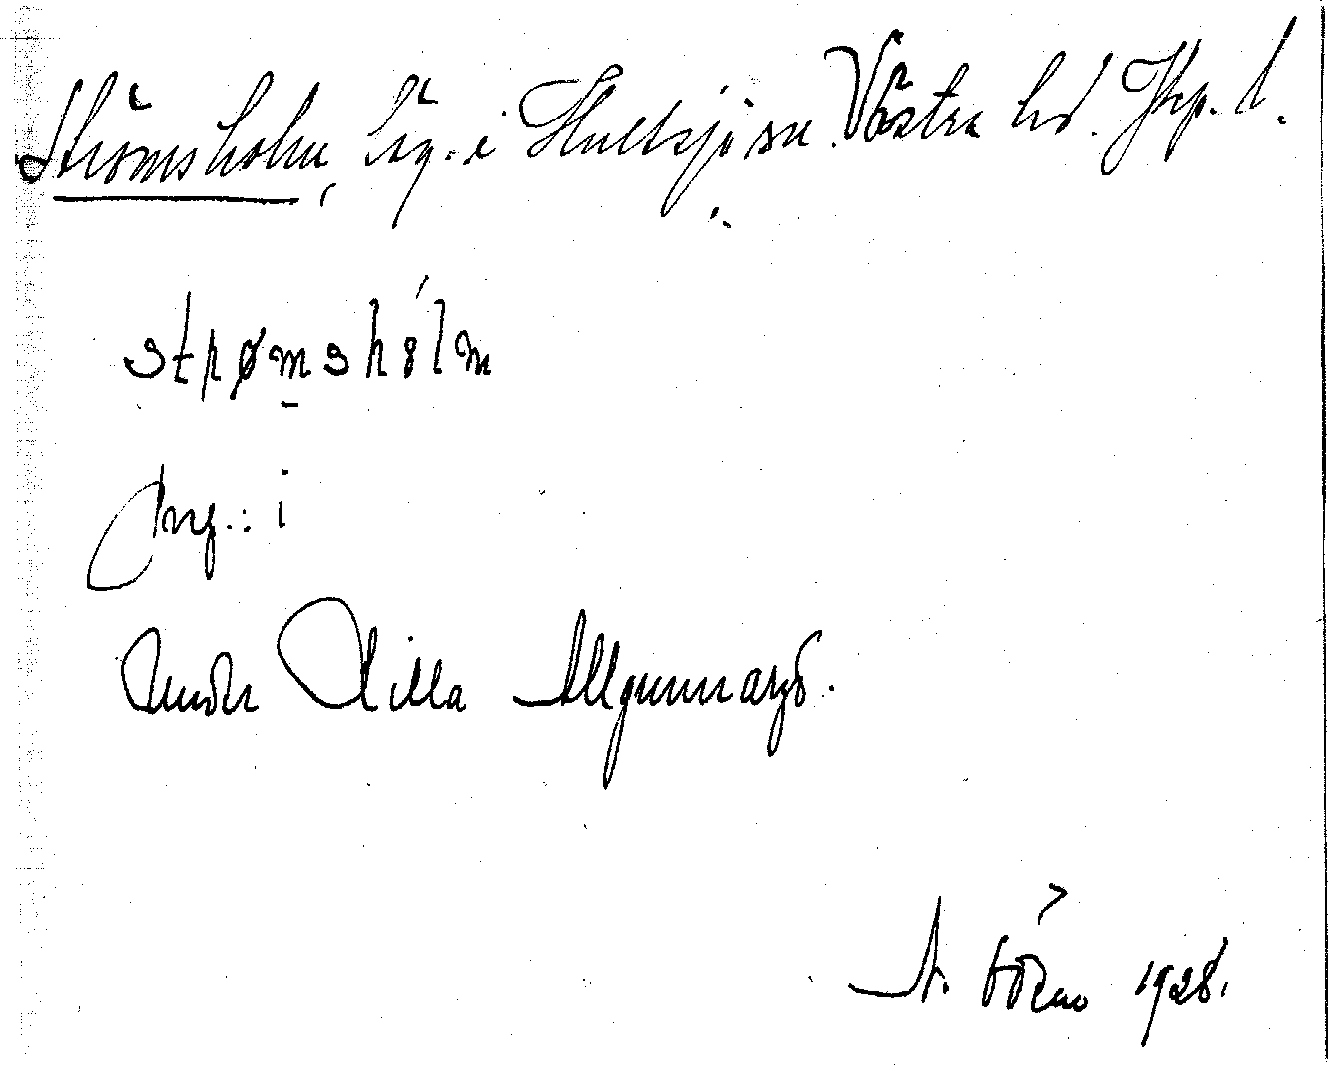 Strömsholm, lg. i Hultsjö sn. Västra hd. Jkp. l.
strømshólm
Prep.: i
Under Lilla Allgunnaryd.
A. 1928.